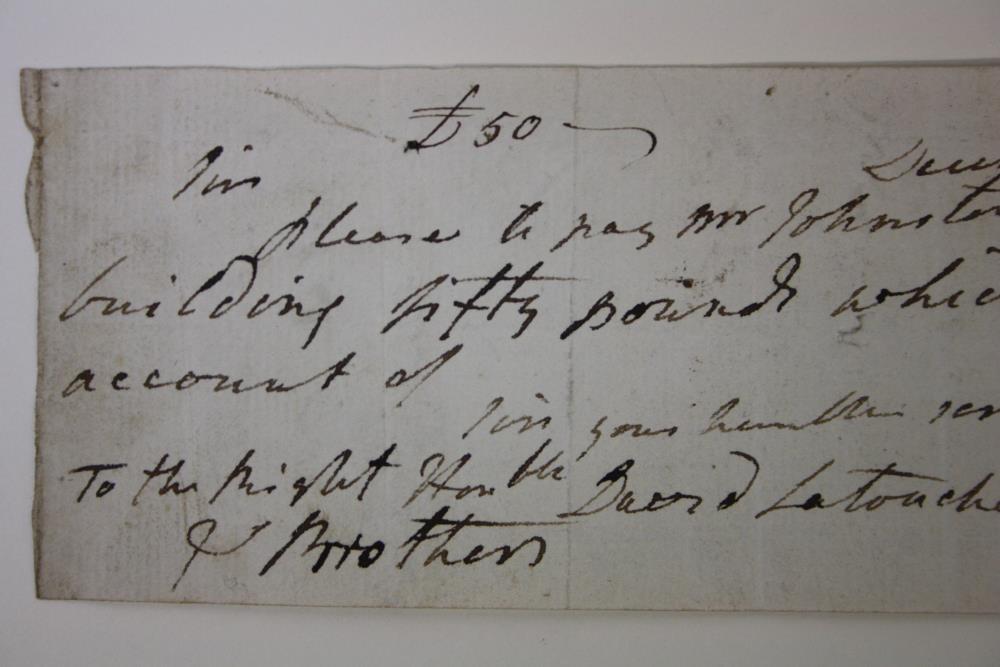 £50
Sir
please to pay Mr Johnston
building fifty pounds which
account of
Sir your humble ser
To the Right Honble David Latouche
& Brothers